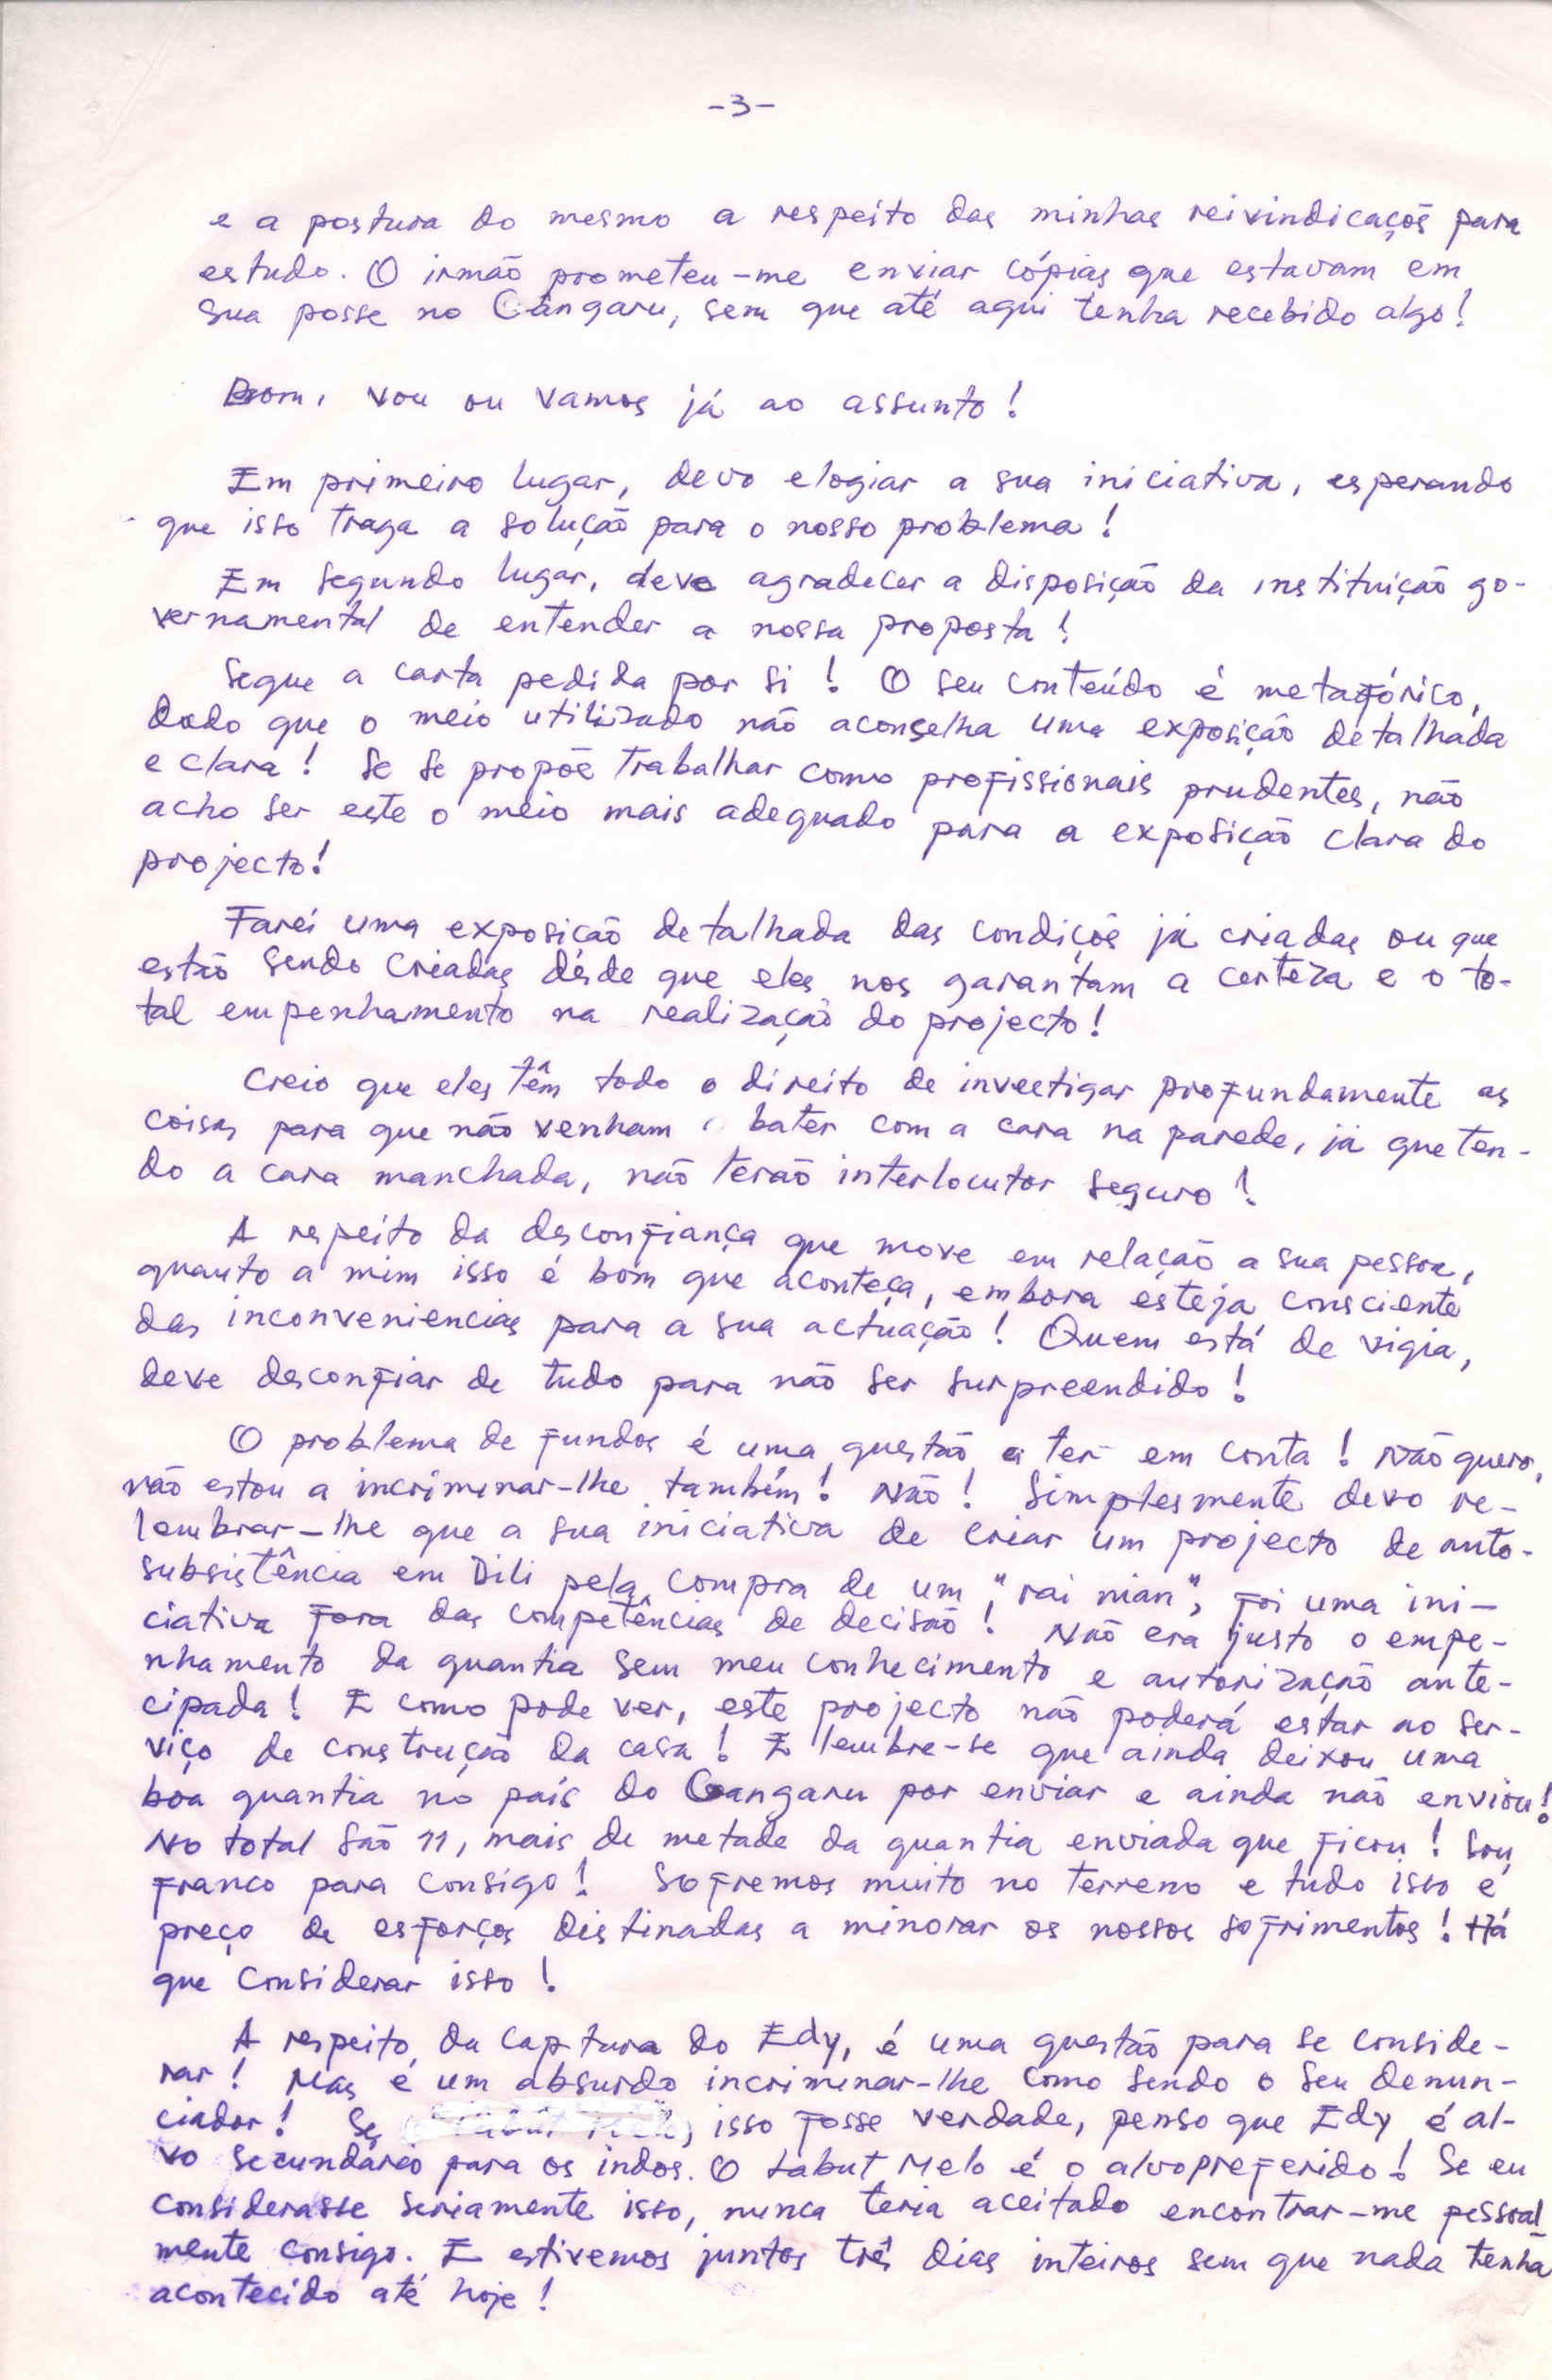 -3-
e a postura do mesmo a respeito das minhas reivindicaçõs para
estudo. O irmão prometeu-me enviar cópias que estavam em
sua posse no Cangaru, sem que até aqui tenha recebido algo!
Bom, vou ou vamos já ao assunto!
Em primeiro lugar, devo elogiar a sua iniciativa, esperando
que isso traga a solução para o nosso problema!
Em segundo lugar, devo agradecer a disposição da instituição go-
vernamental de entender a nossa proposta!
Segue a carta pedida por si! O seu conteúdo é metafórico,
dado que o meio utilizado não aconselha uma exposição detalhada
e clara! Se se propõe trabalhar como profissionais prudentes, não
acho ser este o meio mais adequado para a exposição clara do
projecto!
Farei uma exposição detalhada das condiçõs já criadas ou que
estão sendo criadas desde que eles nos garantam a certeza e o to-
tal empenhamento na realização do projecto!
Creio que eles têm todo o direito de investigar profundamente as
coisas para que não venham bater com a cara na parede, já que ten-
do a cara manchada, não terão interlocutor seguro!
A respeito da desconfiança que move em relação a sua pessoa,
quanto a mim isso é bom que aconteça, embora esteja consciente
das inconveniencias para a sua actuação! Quem está de vigia,
deve desconfiar de tudo para não ser surpreendido!
O problema de fundos é uma questão a ter em conta! Não quero,
não estou a incriminar-lhe também! Não! Simplesmente devo re-
lembrar-lhe que a sua iniciativa de criar um projecto de auto-
subsistência em Dili pela compra de um "rai nian", foi uma ini-
ciativa fora das competências de decisão! Não era justo o empe-
nhamento da quantia sem meu conhecimento e autorização ante-
cipada! E como pode ver, este projecto não poderá estar ao ser-
viço de construção da casa! E lembre-se que ainda deixou uma
boa quantia no país do Cangaru por enviar e ainda não enviou!
No total são 11, mais de metade da quantia enviada que ficou! Sou
franco para consigo! Sofremos muito no terreno e tudo isso é
preço de esforços distinadas a minorar os nossos sofrimentos! Há
que considerar isso!
A respeito da captura do Edy, é uma questão para se conside-
rar! Mas é um absurdo incriminar-lhe como sendo o seu denun-
ciador! Se isso fosse verdade, penso que Edy é al-
vo secundário para os indos. O Labut Melo é o alvo preferido! Se eu
considerasse seriamente isso, nunca teria aceitado encontrar-me pessoal-
mente consigo. E estivemos juntos três dias inteiros sem que nada tenha
acontecido até hoje!